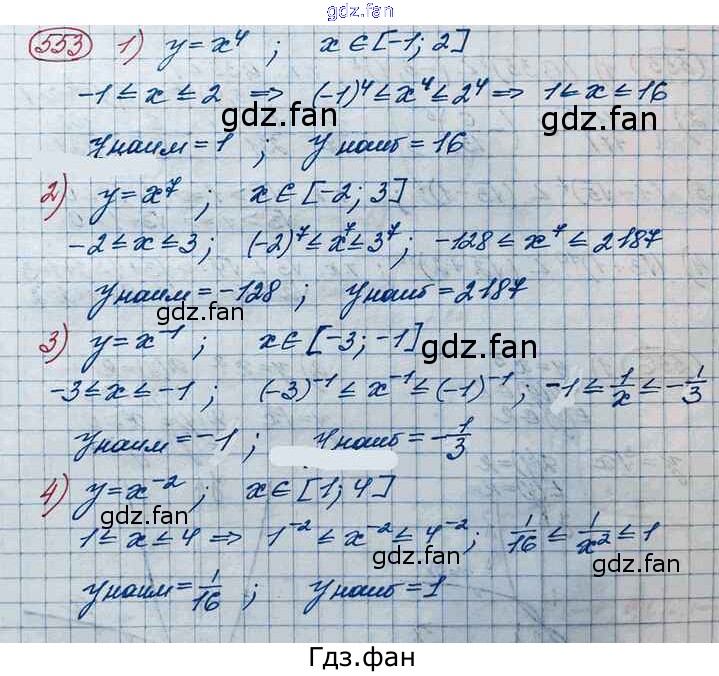 gdz.fan
553 1) y = x⁴ ; x ∈ [-1; 2]
-1 ≤ x ≤ 2 ⇒ (-1)⁴ ≤ x⁴ ≤ 2⁴ ⇒ 1 ≤ x ≤ 16
gdz.fan gdz.fan
y наим = 1 ; y наиб = 16
2) y = x⁷ ; x ∈ [-2; 3]
-2 ≤ x ≤ 3 ; (-2)⁷ ≤ x⁷ ≤ 3⁷ ; -128 ≤ x⁷ ≤ 2187
y наим = -128 ; y наиб = 2187
gdz.fan
3) y = x⁻¹ ; x ∈ [-3; -1]
gdz.fan
-3 ≤ x ≤ -1 ; (-3)⁻¹ ≤ x⁻¹ ≤ (-1)⁻¹ ; -1 ≤ 1/x ≤ -1/3
y наим = -1 ; y наиб = -1/3
4) y = x⁻² ; x ∈ [1; 4]
gdz.fan
1 ≤ x ≤ 4 ⇒ 1⁻² ≤ x⁻² ≤ 4⁻² ; 1/16 ≤ 1/x² ≤ 1
gdz.fan gdz.fan
y наим = 1/16 ; y наиб = 1
Гдз.фан